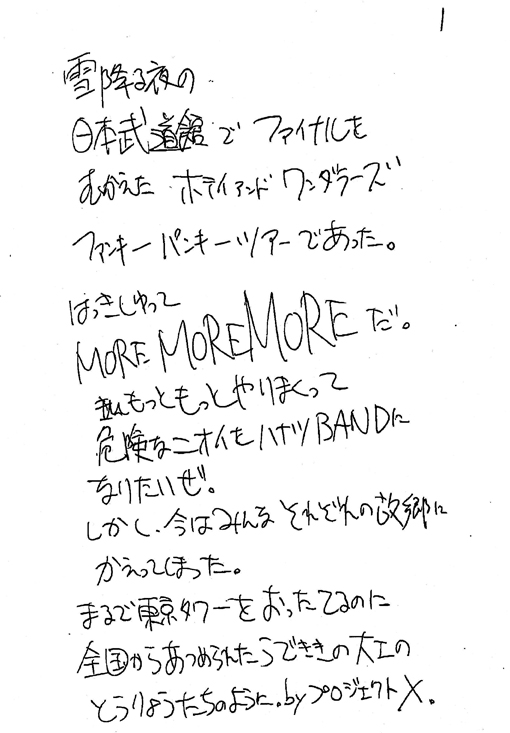 1
雪降る夜の
日本武道館で ファイナルを
むかえた ホテイアンド ワンダラーズ
ファンキー パンキーツアーであった。
はっきしゆって
MORE MORE MORE だ。
もっともっとやりまくって
危険なニオイをハナツBANDに
なりたいぜ。
しかし、今はみんな それぞれの故郷に
かえってしまった。
まるで東京タワーをおったてるのに
全国からあつめられたうでききの大工の
とうりょうたちのように。byプロジェクトX.